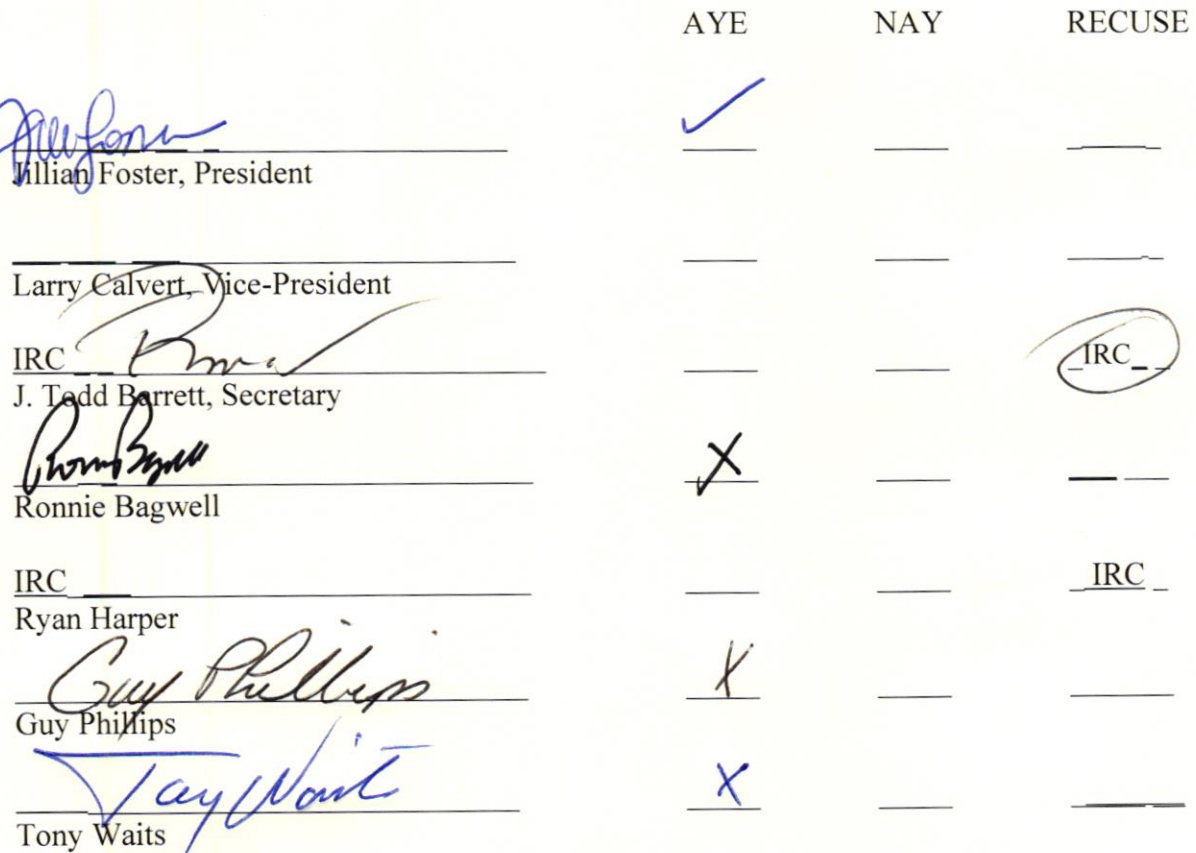 AYE NAY RECUSE
Jillian Foster, President
Larry Calvert, Vice-President
IRC IRC
J. Todd Barrett, Secretary
Ronnie Bagwell X
Ronnie Bagwell
IRC IRC
Ryan Harper
Guy Phillips X
Guy Phillips
Tony Waits X
Tony Waits